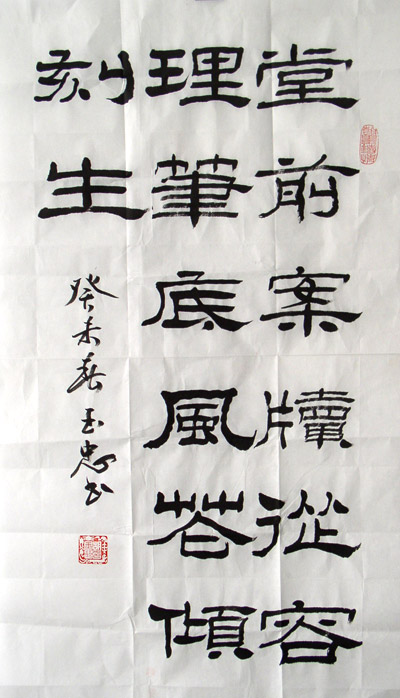 堂前案牘從容
理筆底風花傾
刻生
癸未春玉忠书